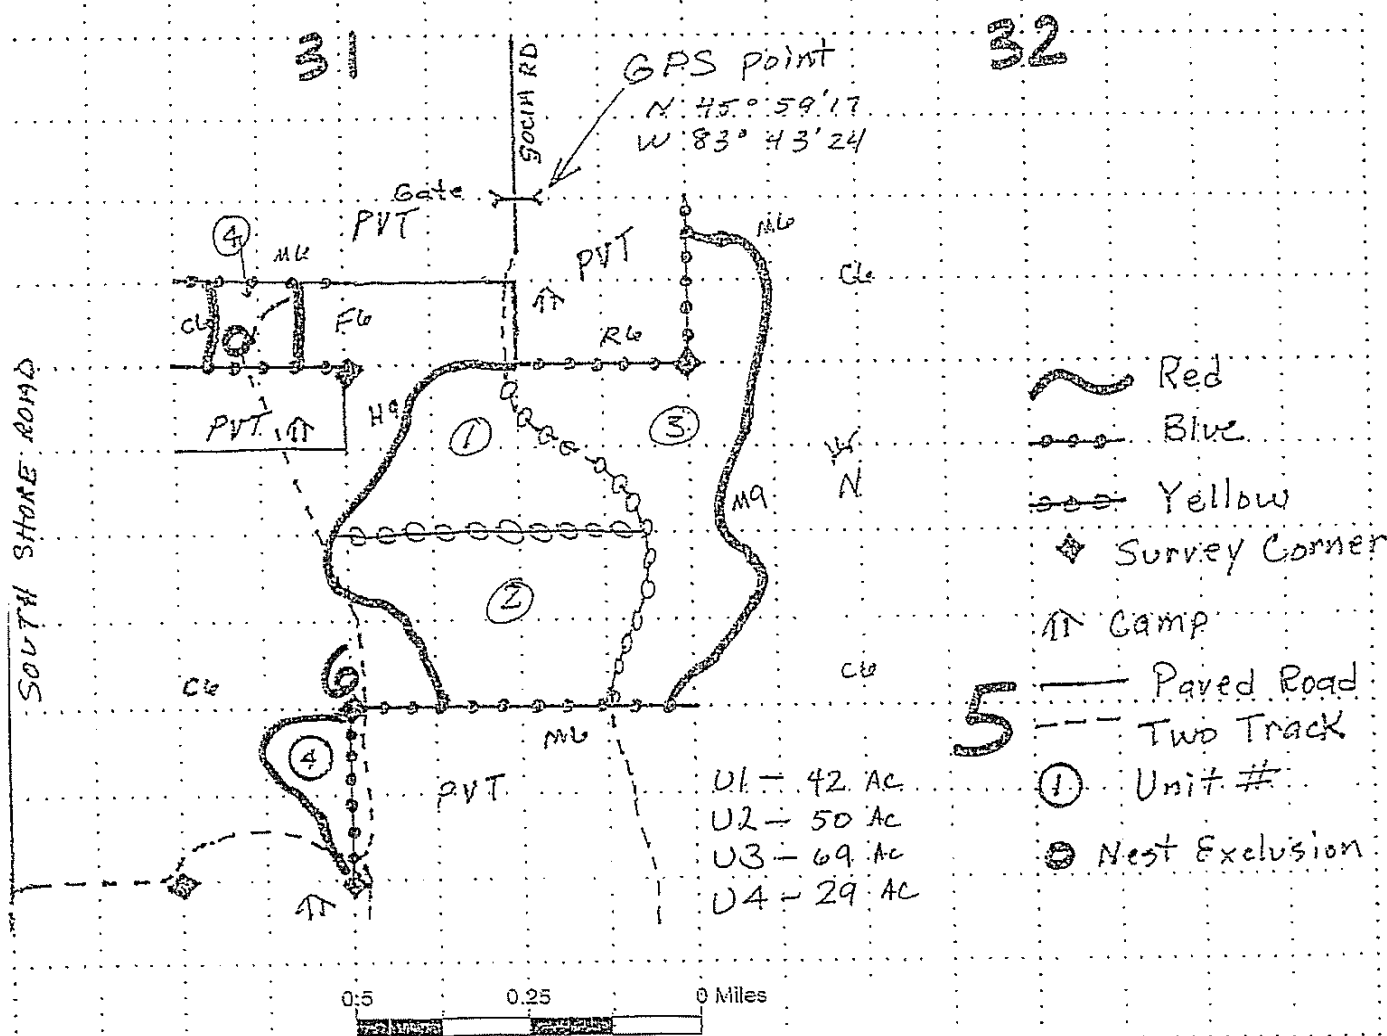 31
32
GPS point
N 45° 59'17
W 83° 43'24
Gate
PVT
4
M6
PVT
M6
C6
C6
F6
R6
PVT
H9
1
3
M9
N
SOUTH SHORE ROAD
2
C6
6
C6
M6
4
PVT
U1 - 42 Ac
U2 - 50 Ac
U3 - 69 Ac
U4 - 29 Ac
5
Red
Blue
Yellow
Survey Corner
Camp
Paved Road
Two Track
1 Unit #
Nest Exclusion
0.5 0.25 0 Miles